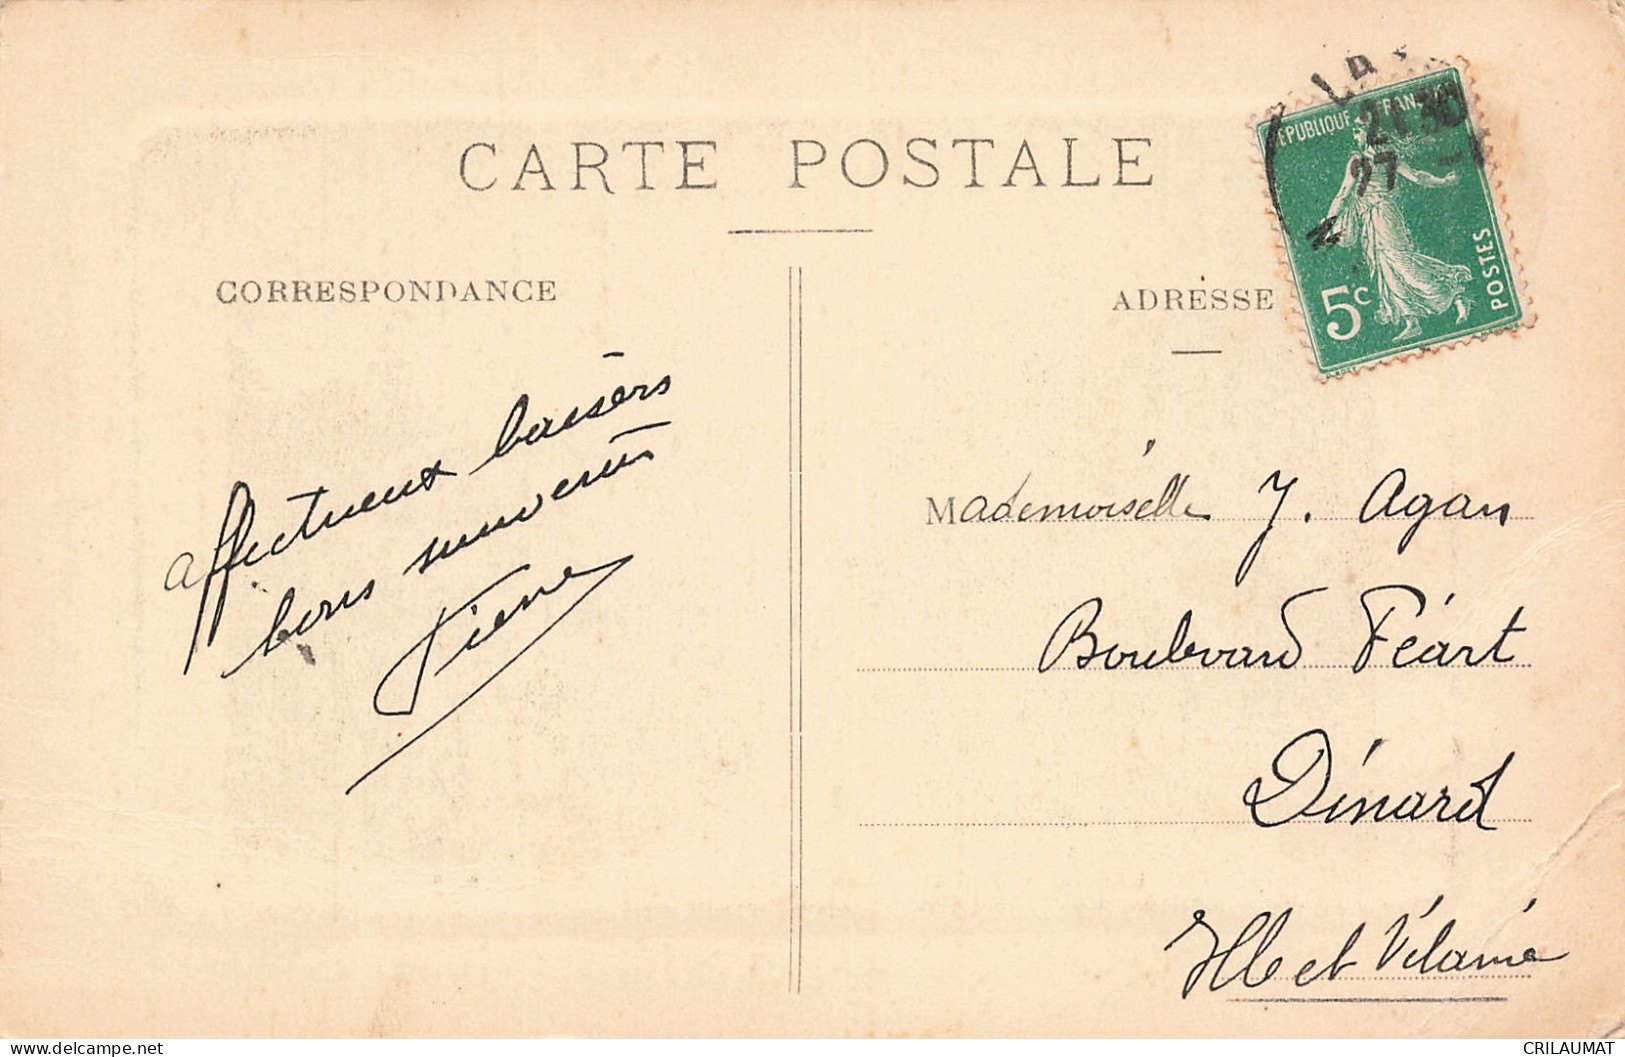 CARTE POSTALE
CORRESPONDANCE
affectueux baisers
bons souvenirs
ADRESSE
RÉPUBLIQUE FRANÇAISE
5c
POSTES
21 30
27
Mademoiselle J. Agan
Boulevard Féart
Dinard
Ille et Vilaine
CRILAUMAT